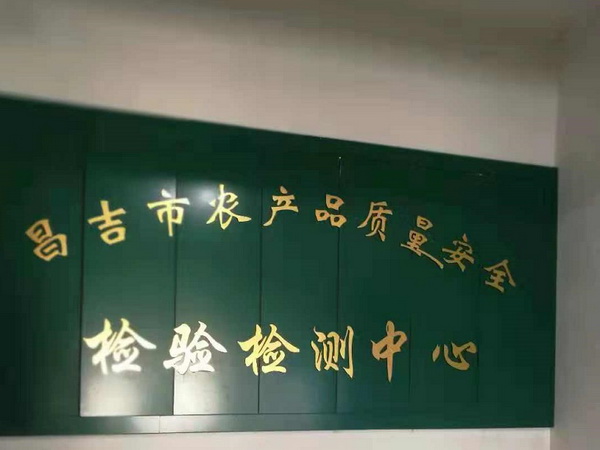 昌吉市农产品质量安全
检验检测中心